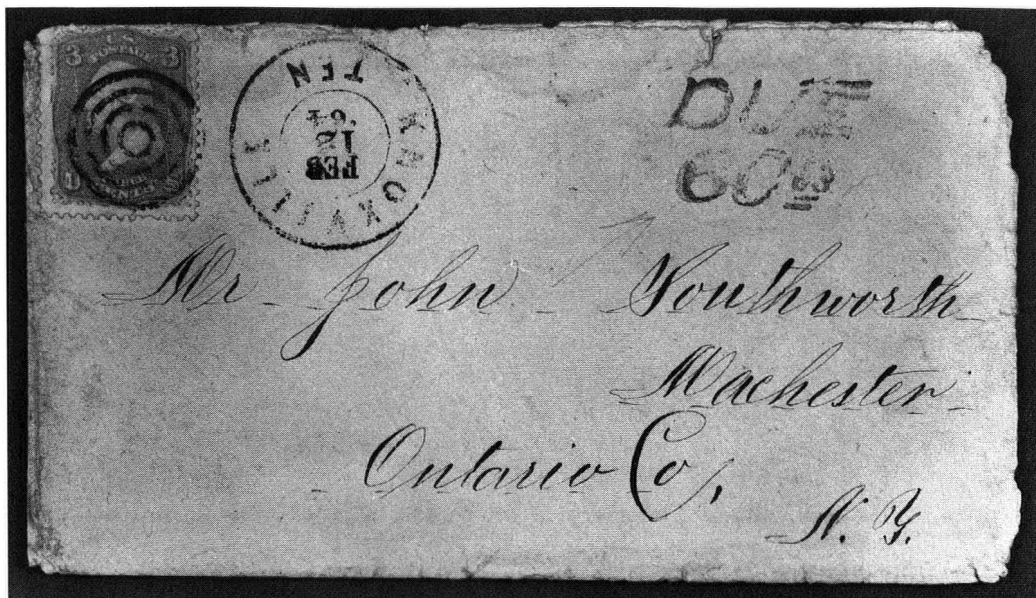 3 U.S. 3
POSTAGE
CENTS
KNOXVILLE
TEN
FEB
12
'64
DUE
60cs
Mr John Southworth
Machester
Ontario Co,
N. Y.